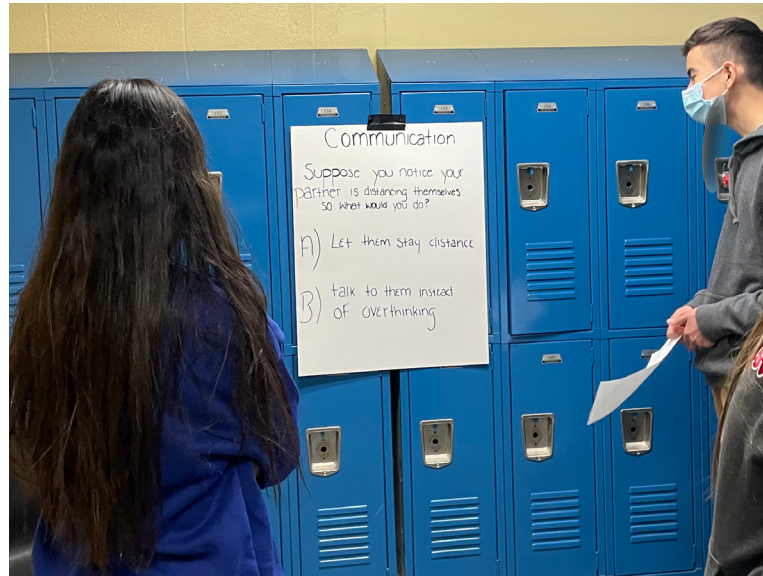 Communication
Suppose you notice your
partner is distancing themselves
so what would you do?
A) Let them stay distance
B) talk to them instead
of overthinking